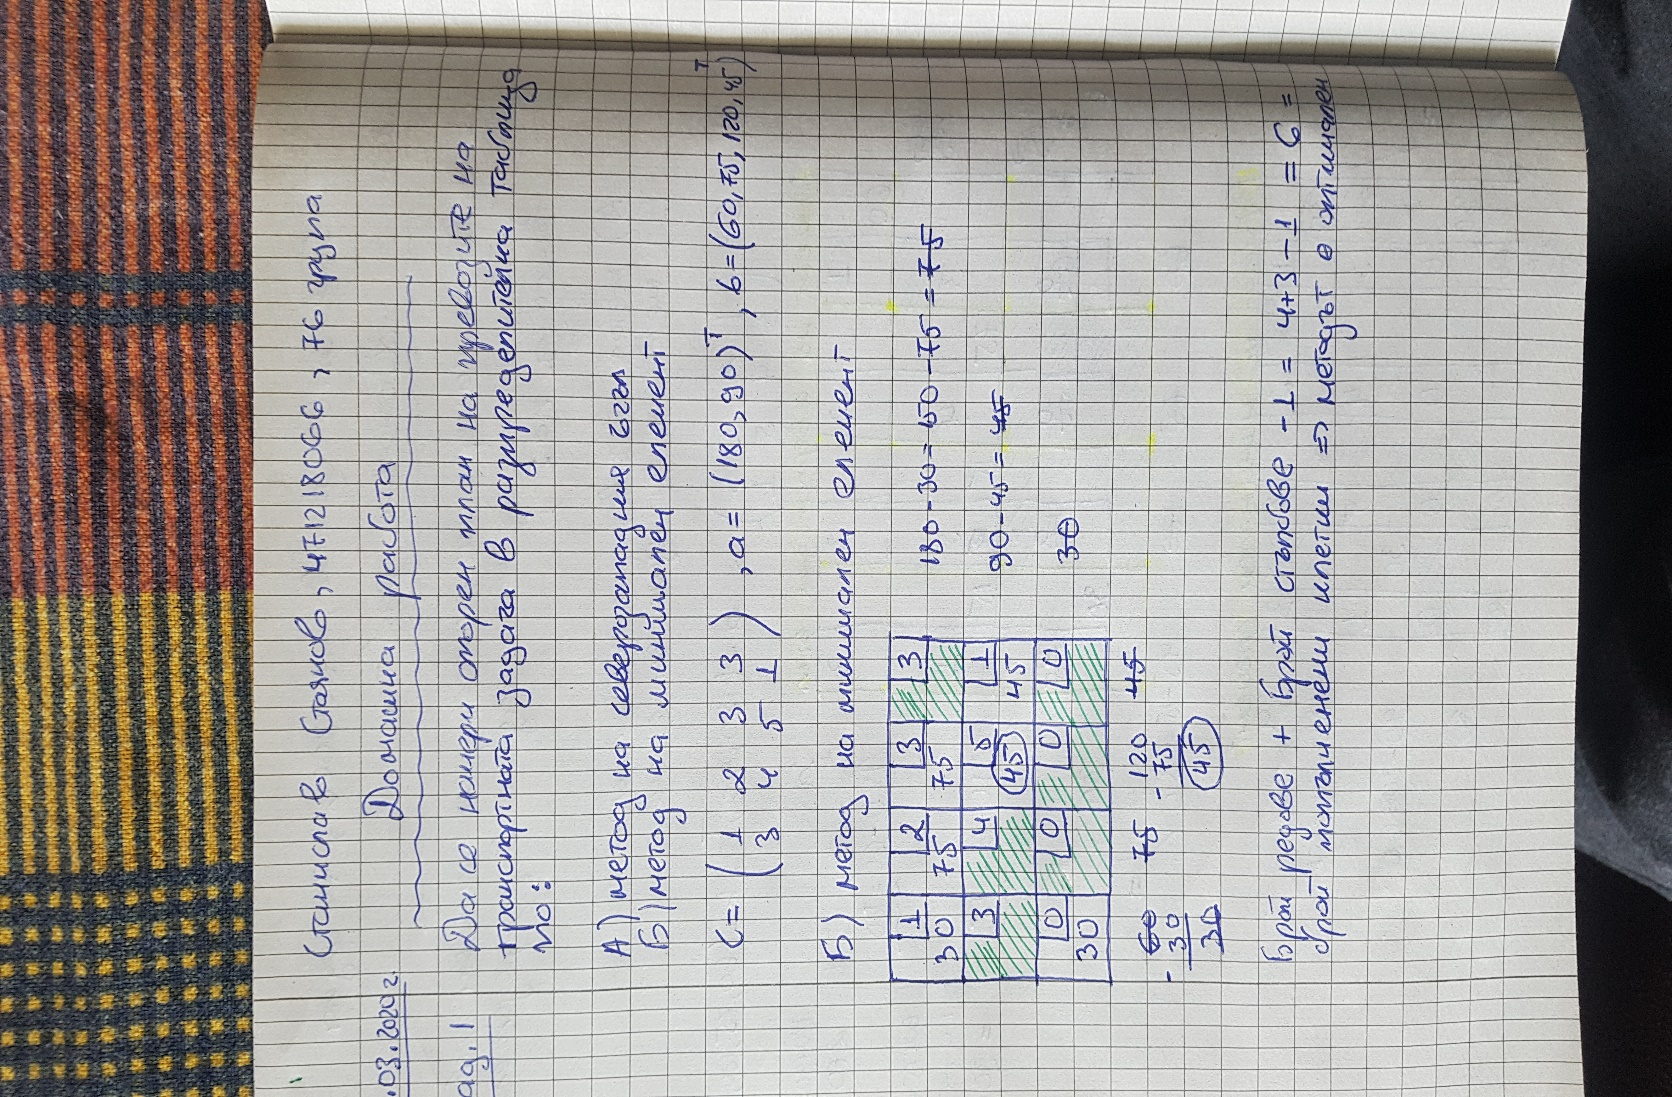 Станислав Стоянов, 471218066, 76 група
.03.2020г
Домашна работа
ад. 1
Да се намери опорен план на превозите на
транспортната задача в разпределителна таблица
по:
А) метод на северозападния ъгъл
Б) метод на минимален елемент
C = ( 1 2 3 3 ) , a = (180, 90)ᵀ, b = (60, 75, 120, 45)ᵀ
3 4 5 1
Б) метод на минимален елемент
1 2 3 3
30 75 75 180 - 30 = 150 - 75 = 75
3 4 5 1
45 45 90 - 45 = 45
0 0 0 0
30 30
60 75 120 45
- 30 - 75
30 45
Брой редове + брой стълбове - 1 = 4+3-1 = 6 =
брой попълнени клетки => методът е оптимален